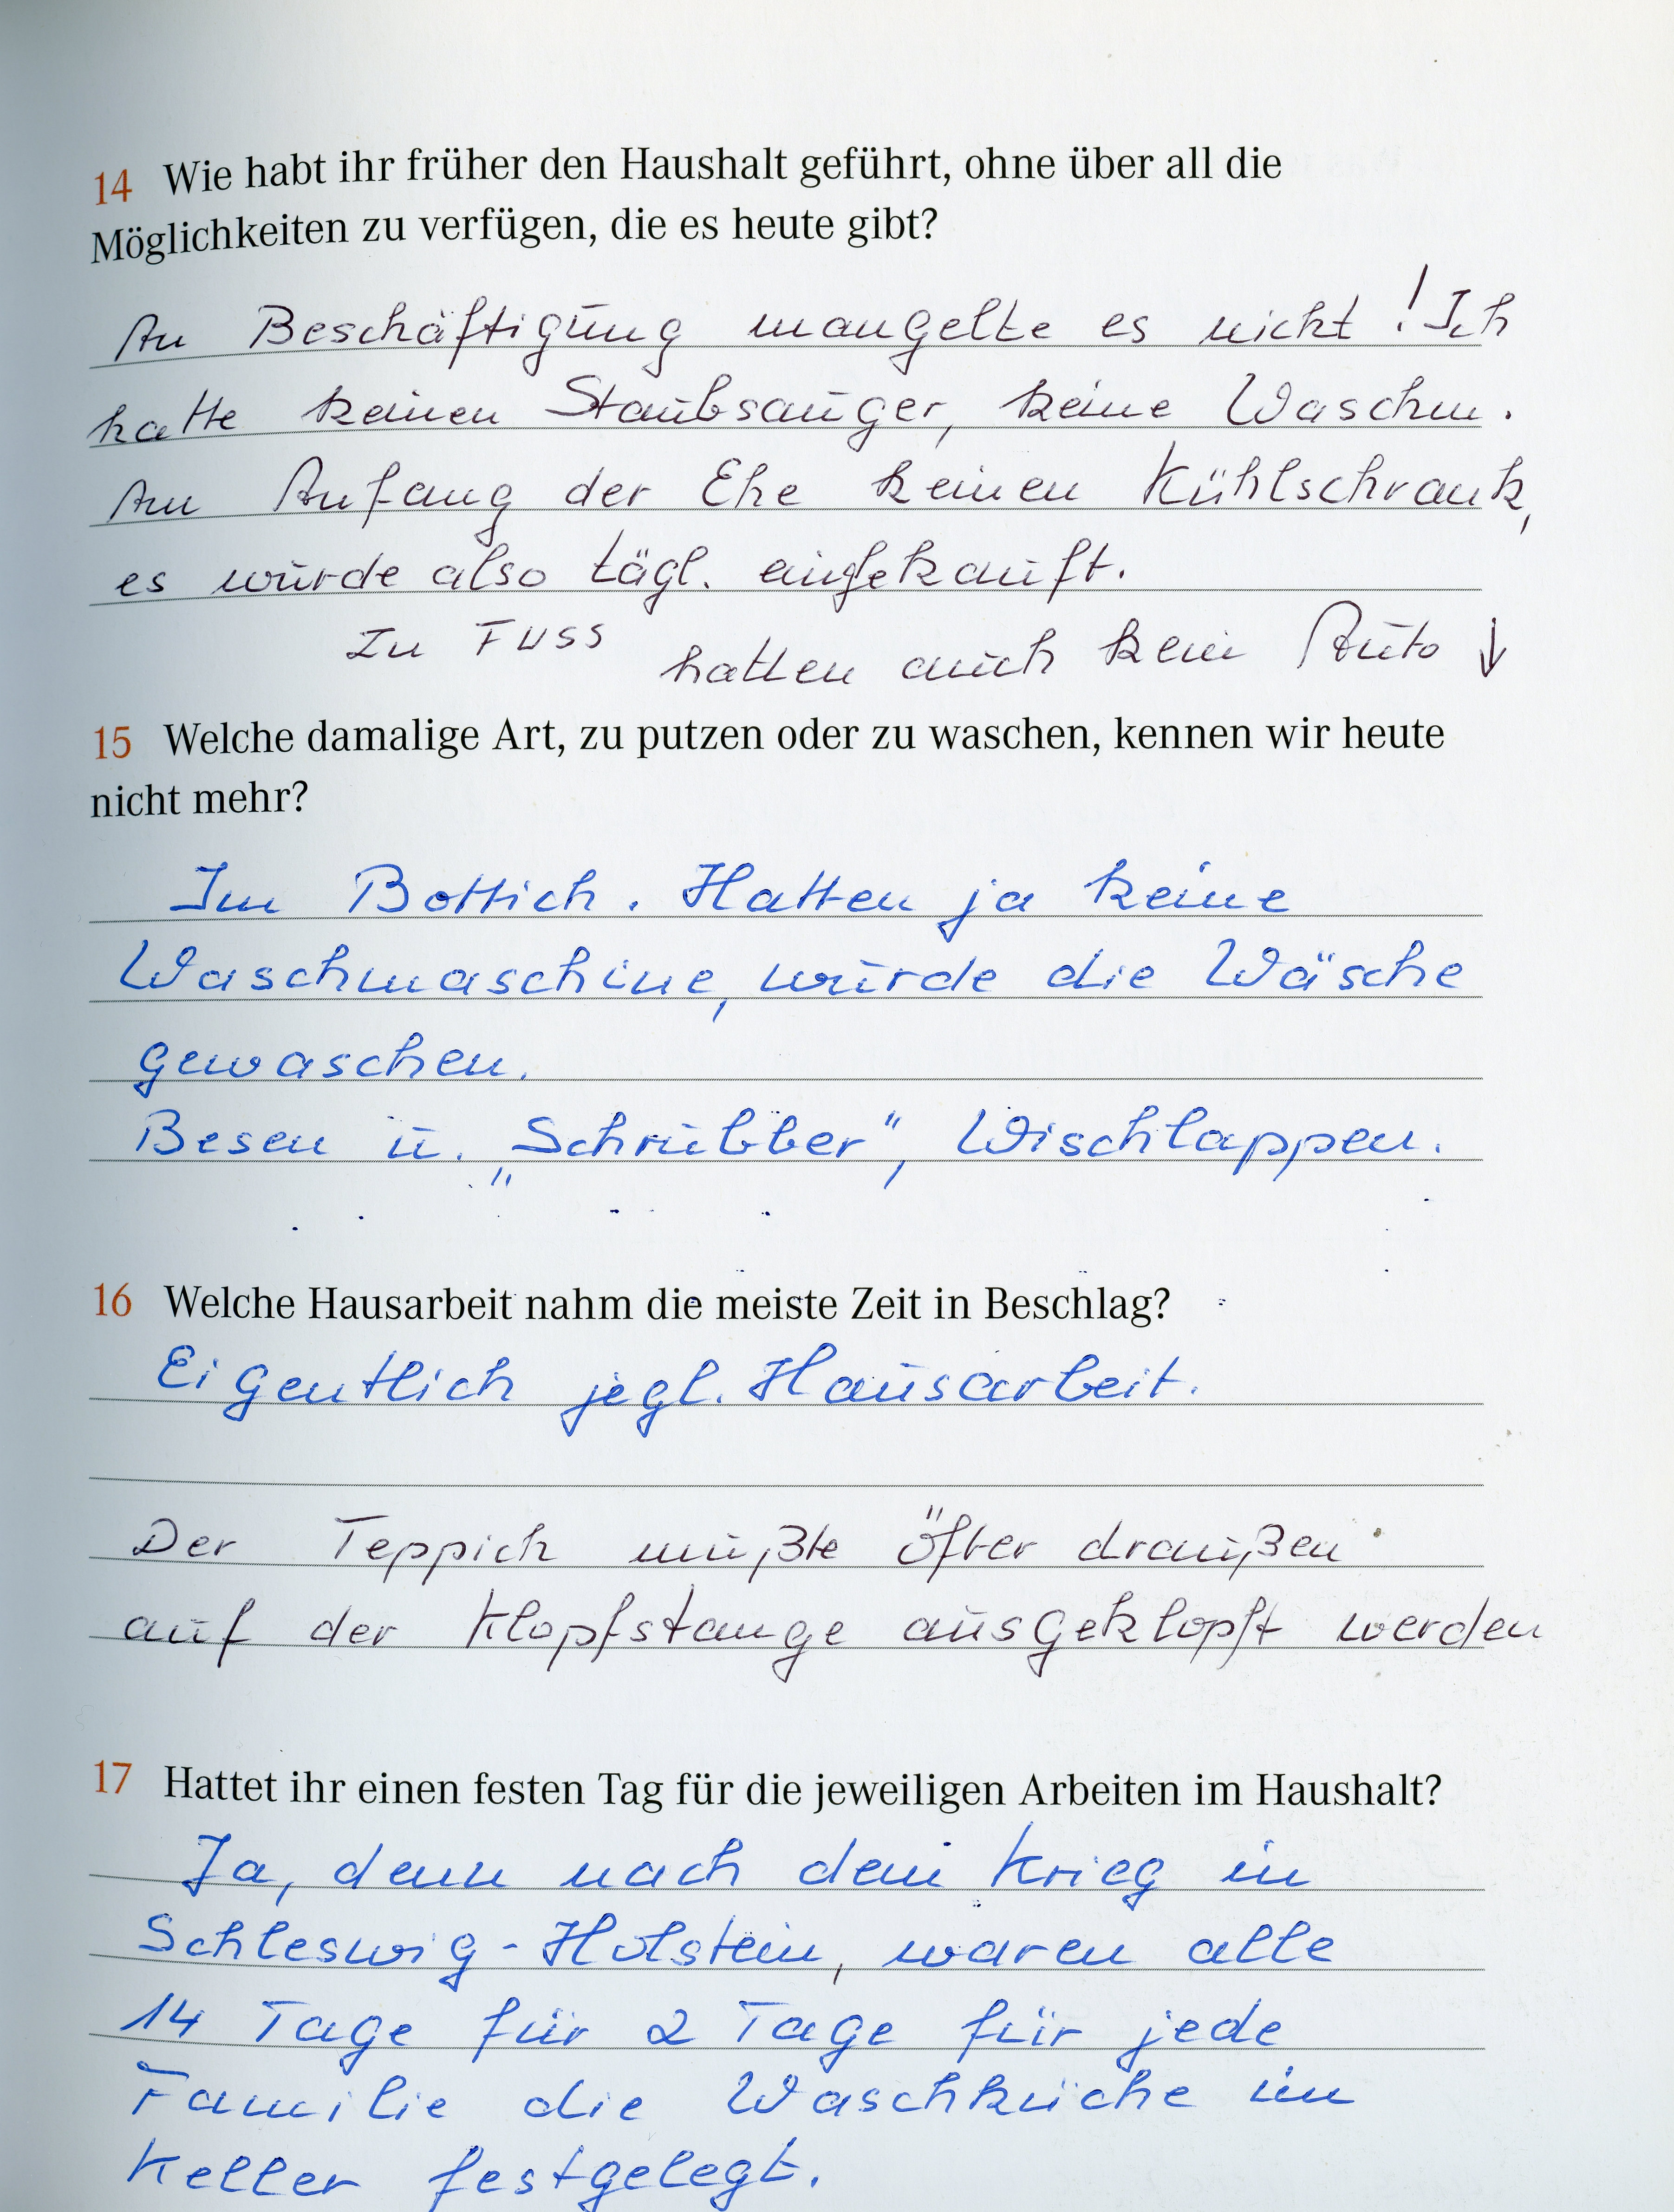 14 Wie habt ihr früher den Haushalt geführt, ohne über all die
Möglichkeiten zu verfügen, die es heute gibt?
An Beschäftigung mangelte es nicht! Ich
hatte keinen Staubsauger, keine Waschm.
Am Anfang der Ehe keinen Kühlschrank,
es wurde also tägl. eingekauft.
Zu FUSS hatten auch kein Auto ↓
15 Welche damalige Art, zu putzen oder zu waschen, kennen wir heute
nicht mehr?
Im Bottich. Hatten ja keine
Waschmaschine, wurde die Wäsche
gewaschen.
Besen u. „Schrubber", Wischlappen.
16 Welche Hausarbeit nahm die meiste Zeit in Beschlag?
Eigentlich jegl. Hausarbeit.
Der Teppich mußte öfter draußen
auf der Klopfstange ausgeklopft werden
17 Hattet ihr einen festen Tag für die jeweiligen Arbeiten im Haushalt?
Ja, denn nach dem Krieg in
Schleswig-Holstein, waren alle
14 Tage für 2 Tage für jede
Familie die Waschküche im
Keller festgelegt.